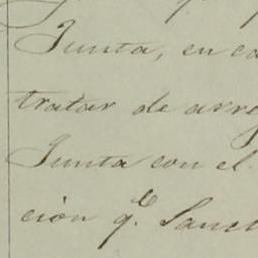 Junta, en co
tratar de arre
Junta con el
cion q.e Sanc